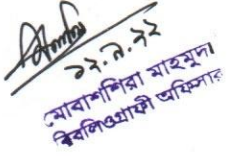 ১২.৯.২২
মোবাশশিরা মাহমুদা
বিবলিওগ্রাফী অফিসার